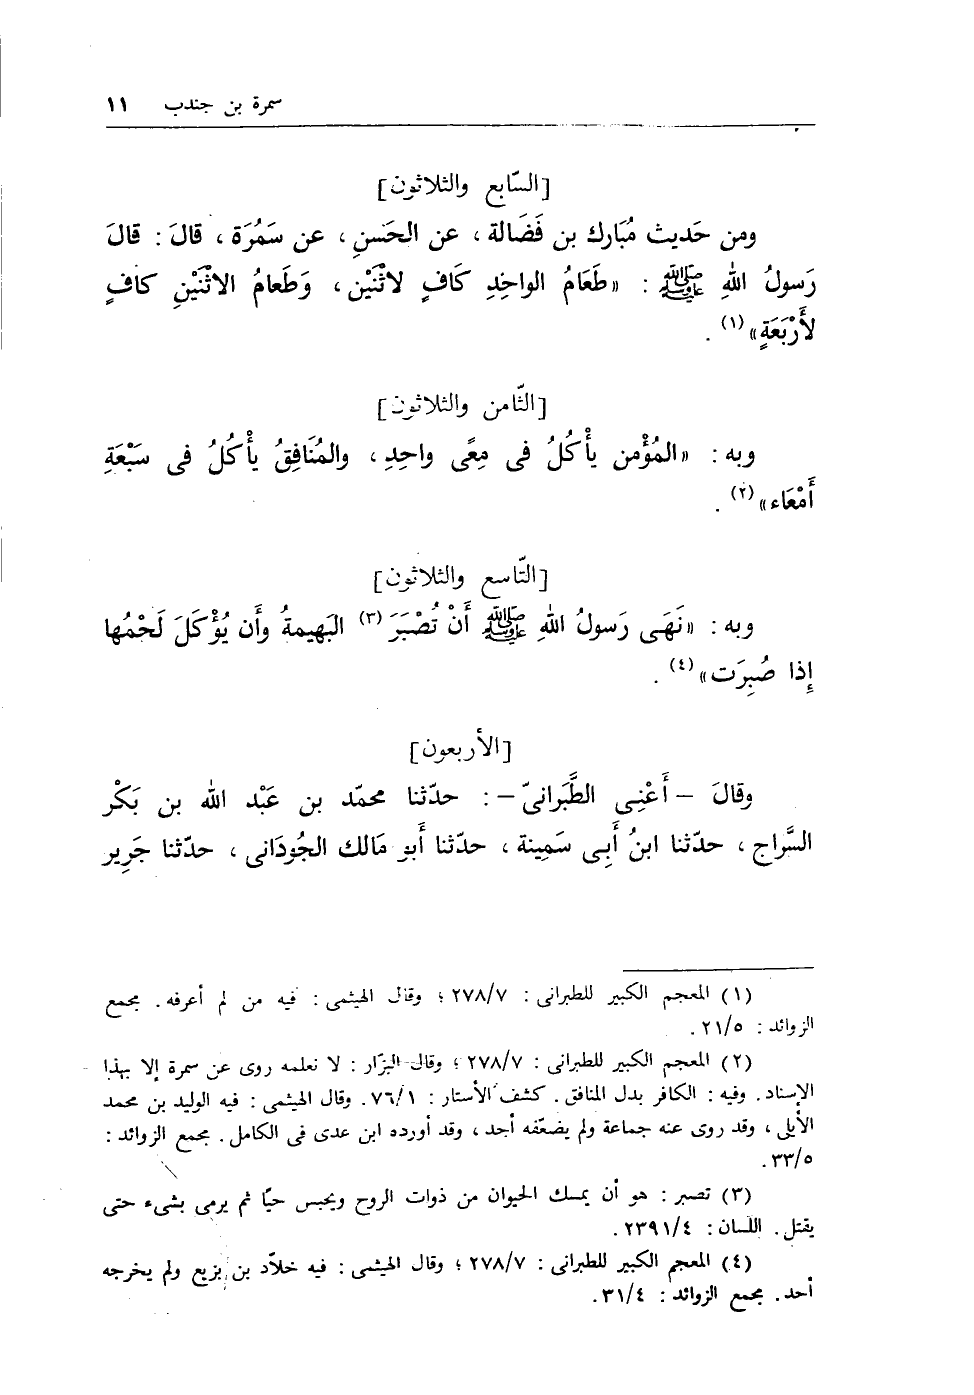 سمرة بن جندب ١١
[السّابع والثلاثون]
ومن حَديث مُبَارك بن فَضَالة ، عن الحَسنِ ، عن سَمُرَة ، قالَ : قالَ
رَسولُ اللهِ ﷺ : «طَعَامُ الواحِدِ كَافٍ لاثْنَيْن ، وَطَعامُ الاثْنَيْنِ كافٍ
لأَرْبَعَةٍ»(١) .
[الثّامن والثلاثون]
وبه : «المُؤْمن يأْكُلُ فى مِعًى واحِدِ ، والمُنَافِقُ يأْكُلُ فى سَبْعَةِ
أَمْعَاء»(٢) .
[التّاسع والثلاثون]
وبه : «نَهَى رَسولُ اللهِ ﷺ أَنْ تُصْبَرَ(٣) البَهيمةُ وأَن يُؤْكَلَ لَحْمُها
إِذا صُبِرَت»(٤) .
[الأربعون]
وقالَ – أَعْنِى الطَّبَرانىّ – : حدّثنا محمّد بن عَبْد الله بن بَكْر
السَّراج ، حدّثنا ابنُ أَبِى سَمِينة ، حدّثنا أَبو مَالك الجُودَانى ، حدّثنا جَرِير
(١) المعجم الكبير للطبرانى : ٢٧٨/٧ ؛ وقال الهيثمى : فيه من لم أعرفه . مجمع
الزوائد : ٢١/٥ .
(٢) المعجم الكبير للطبرانى : ٢٧٨/٧ ؛ وقال البزّار : لا نعلمه روى عن سمرة إلا بهذا
الإسناد . وفيه : الكافر بدل المنافق . كشف الأستار : ٧٦/١ . وقال الهيثمى : فيه الوليد بن محمد
الأيلى ، وقد روى عنه جماعة ولم يضعّفه أحد ، وقد أورده ابن عدى فى الكامل . مجمع الزوائد :
٣٣/٥ .
(٣) تصبر : هو أن يمسك الحيوان من ذوات الروح ويحبس حيًّا ثم يرمى بشىء حتى
يقتل . اللسان : ٢٣٩١/٤ .
(٤) المعجم الكبير للطبرانى : ٢٧٨/٧ ؛ وقال الهيثمى : فيه خلاّد بن بزيع ولم يخرجه
أحد . مجمع الزوائد : ٣١/٤ .